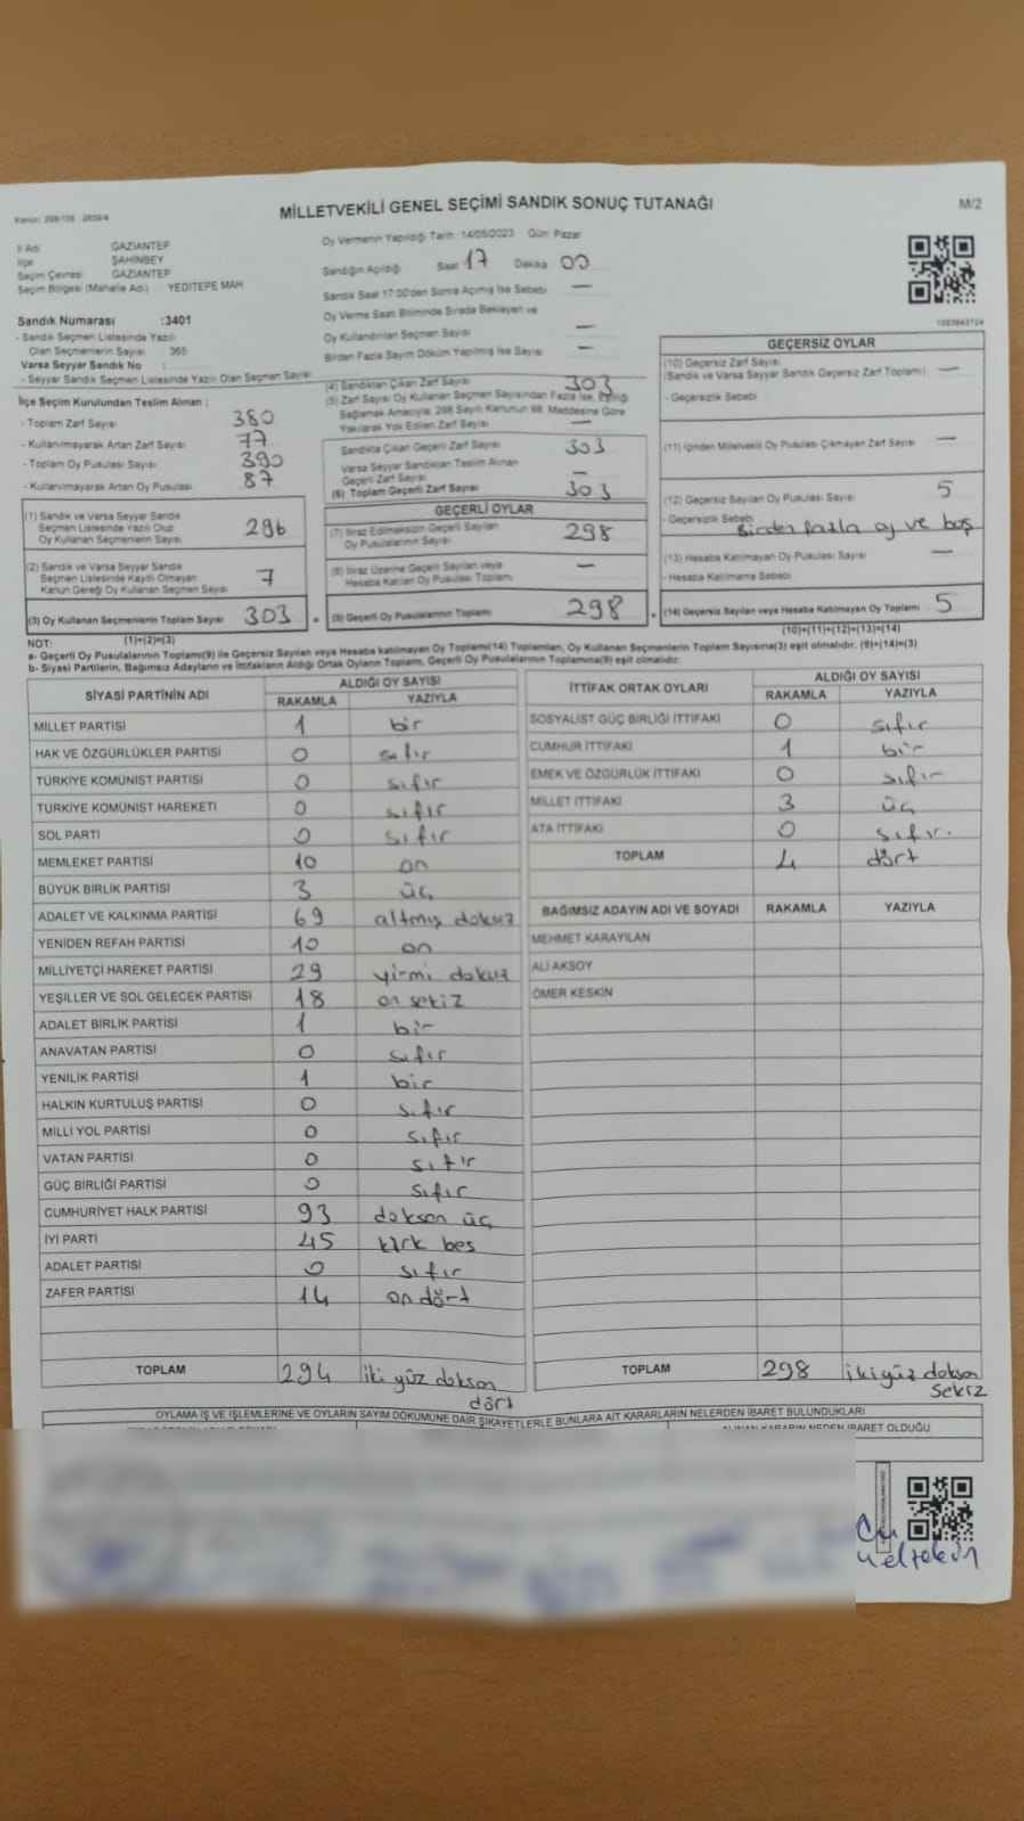 MİLLETVEKİLİ GENEL SEÇİMİ SANDIK SONUÇ TUTANAĞI
M/2
İl Adı GAZİANTEP
İlçe ŞAHİNBEY
Seçim Çevresi GAZİANTEP
Seçim Bölgesi (Mahalle Adı) YEDİTEPE MAH
Sandık Numarası :3401
- Sandık Seçmen Listesinde Yazılı
Olan Seçmenlerin Sayısı 365
Varsa Seyyar Sandık No :
- Seyyar Sandık Seçmen Listesinde Yazılı Olan Seçmen Sayısı
İlçe Seçim Kurulundan Teslim Alınan :
- Toplam Zarf Sayısı 380
- Kullanılmayarak Artan Zarf Sayısı 77
- Toplam Oy Pusulası Sayısı 390
- Kullanılmayarak Artan Oy Pusulası 87
(1) Sandık ve Varsa Seyyar Sandık
Seçmen Listesinde Yazılı Olup
Oy Kullanan Seçmenlerin Sayısı 296
(2) Sandık ve Varsa Seyyar Sandık
Seçmen Listesinde Kayıtlı Olmayan
Kanun Gereği Oy Kullanan Seçmen Sayısı 7
(3) Oy Kullanan Seçmenlerin Toplam Sayısı 303
(1)+(2)=(3)
Oy Vermenin Yapıldığı Tarih :14/05/2023 Gün: Pazar
Sandığın Açıldığı Saat 17 Dakika 00
Sandık Saat 17:00'den Sonra Açılmış İse Sebebi —
Oy Verme Saati Bitiminde Sırada Bekleyen ve
Oy Kullandırılan Seçmen Sayısı —
Birden Fazla Sayım Döküm Yapılmış İse Sayısı —
(4) Sandıktan Çıkan Zarf Sayısı 303
(5) Zarf Sayısı Oy Kullanan Seçmen Sayısından Fazla İse, Eşitliği
Sağlamak Amacıyla, 298 Sayılı Kanunun 98. Maddesine Göre
Yakılarak Yok Edilen Zarf Sayısı —
Sandıkta Çıkan Geçerli Zarf Sayısı 303
Varsa Seyyar Sandıktan Teslim Alınan
Geçerli Zarf Sayısı —
(6) Toplam Geçerli Zarf Sayısı 303
GEÇERLİ OYLAR
(7) İtiraz Edilmeksizin Geçerli Sayılan
Oy Pusulalarının Sayısı 298
(8) İtiraz Üzerine Geçerli Sayılan veya
Hesaba Katılan Oy Pusulası Toplamı —
(9) Geçerli Oy Pusulalarının Toplamı 298
GEÇERSİZ OYLAR
(10) Geçersiz Zarf Sayısı
(Sandık ve Varsa Seyyar Sandık Geçersiz Zarf Toplamı) —
- Geçersizlik Sebebi
(11) İçinden Milletvekili Oy Pusulası Çıkmayan Zarf Sayısı —
(12) Geçersiz Sayılan Oy Pusulası Sayısı 5
- Geçersizlik Sebebi Birden fazla oy ve boş
(13) Hesaba Katılmayan Oy Pusulası Sayısı —
- Hesaba Katılmama Sebebi
(14) Geçersiz Sayılan veya Hesaba Katılmayan Oy Toplamı 5
(10)+(11)+(12)+(13)=(14)
NOT:
a- Geçerli Oy Pusulalarının Toplamı(9) ile Geçersiz Sayılan veya Hesaba katılmayan Oy Toplamı(14) Toplamları, Oy Kullanan Seçmenlerin Toplam Sayısına(3) eşit olmalıdır. (9)+(14)=(3)
b- Siyasi Partilerin, Bağımsız Adayların ve İttifakların Aldığı Ortak Oyların Toplamı, Geçerli Oy Pusulalarının Toplamına(9) eşit olmalıdır.
SİYASİ PARTİNİN ADI ALDIĞI OY SAYISI
RAKAMLA YAZIYLA
MİLLET PARTİSİ 1 bir
HAK VE ÖZGÜRLÜKLER PARTİSİ 0 sıfır
TÜRKİYE KOMÜNİST PARTİSİ 0 sıfır
TÜRKİYE KOMÜNİST HAREKETİ 0 sıfır
SOL PARTİ 0 sıfır
MEMLEKET PARTİSİ 10 on
BÜYÜK BİRLİK PARTİSİ 3 üç
ADALET VE KALKINMA PARTİSİ 69 altmış dokuz
YENİDEN REFAH PARTİSİ 10 on
MİLLİYETÇİ HAREKET PARTİSİ 29 yirmi dokuz
YEŞİLLER VE SOL GELECEK PARTİSİ 18 on sekiz
ADALET BİRLİK PARTİSİ 1 bir
ANAVATAN PARTİSİ 0 sıfır
YENİLİK PARTİSİ 1 bir
HALKIN KURTULUŞ PARTİSİ 0 sıfır
MİLLİ YOL PARTİSİ 0 sıfır
VATAN PARTİSİ 0 sıfır
GÜÇ BİRLİĞİ PARTİSİ 0 sıfır
CUMHURİYET HALK PARTİSİ 93 doksan üç
İYİ PARTİ 45 kırk beş
ADALET PARTİSİ 0 sıfır
ZAFER PARTİSİ 14 on dört
TOPLAM 294 iki yüz doksan
dört
İTTİFAK ORTAK OYLARI ALDIĞI OY SAYISI
RAKAMLA YAZIYLA
SOSYALİST GÜÇ BİRLİĞİ İTTİFAKI 0 sıfır
CUMHUR İTTİFAKI 1 bir
EMEK VE ÖZGÜRLÜK İTTİFAKI 0 sıfır
MİLLET İTTİFAKI 3 üç
ATA İTTİFAKI 0 sıfır.
TOPLAM 4 dört
BAĞIMSIZ ADAYIN ADI VE SOYADI RAKAMLA YAZIYLA
MEHMET KARAYILAN
ALİ AKSOY
ÖMER KESKİN
TOPLAM 298 ikiyüz doksan
sekiz
OYLAMA İŞ VE İŞLEMLERİNE VE OYLARIN SAYIM DÖKÜMÜNE DAİR ŞİKAYETLERLE BUNLARA AİT KARARLARIN NELERDEN İBARET BULUNDUKLARI
ALINAN KARARIN NEDEN İBARET OLDUĞU